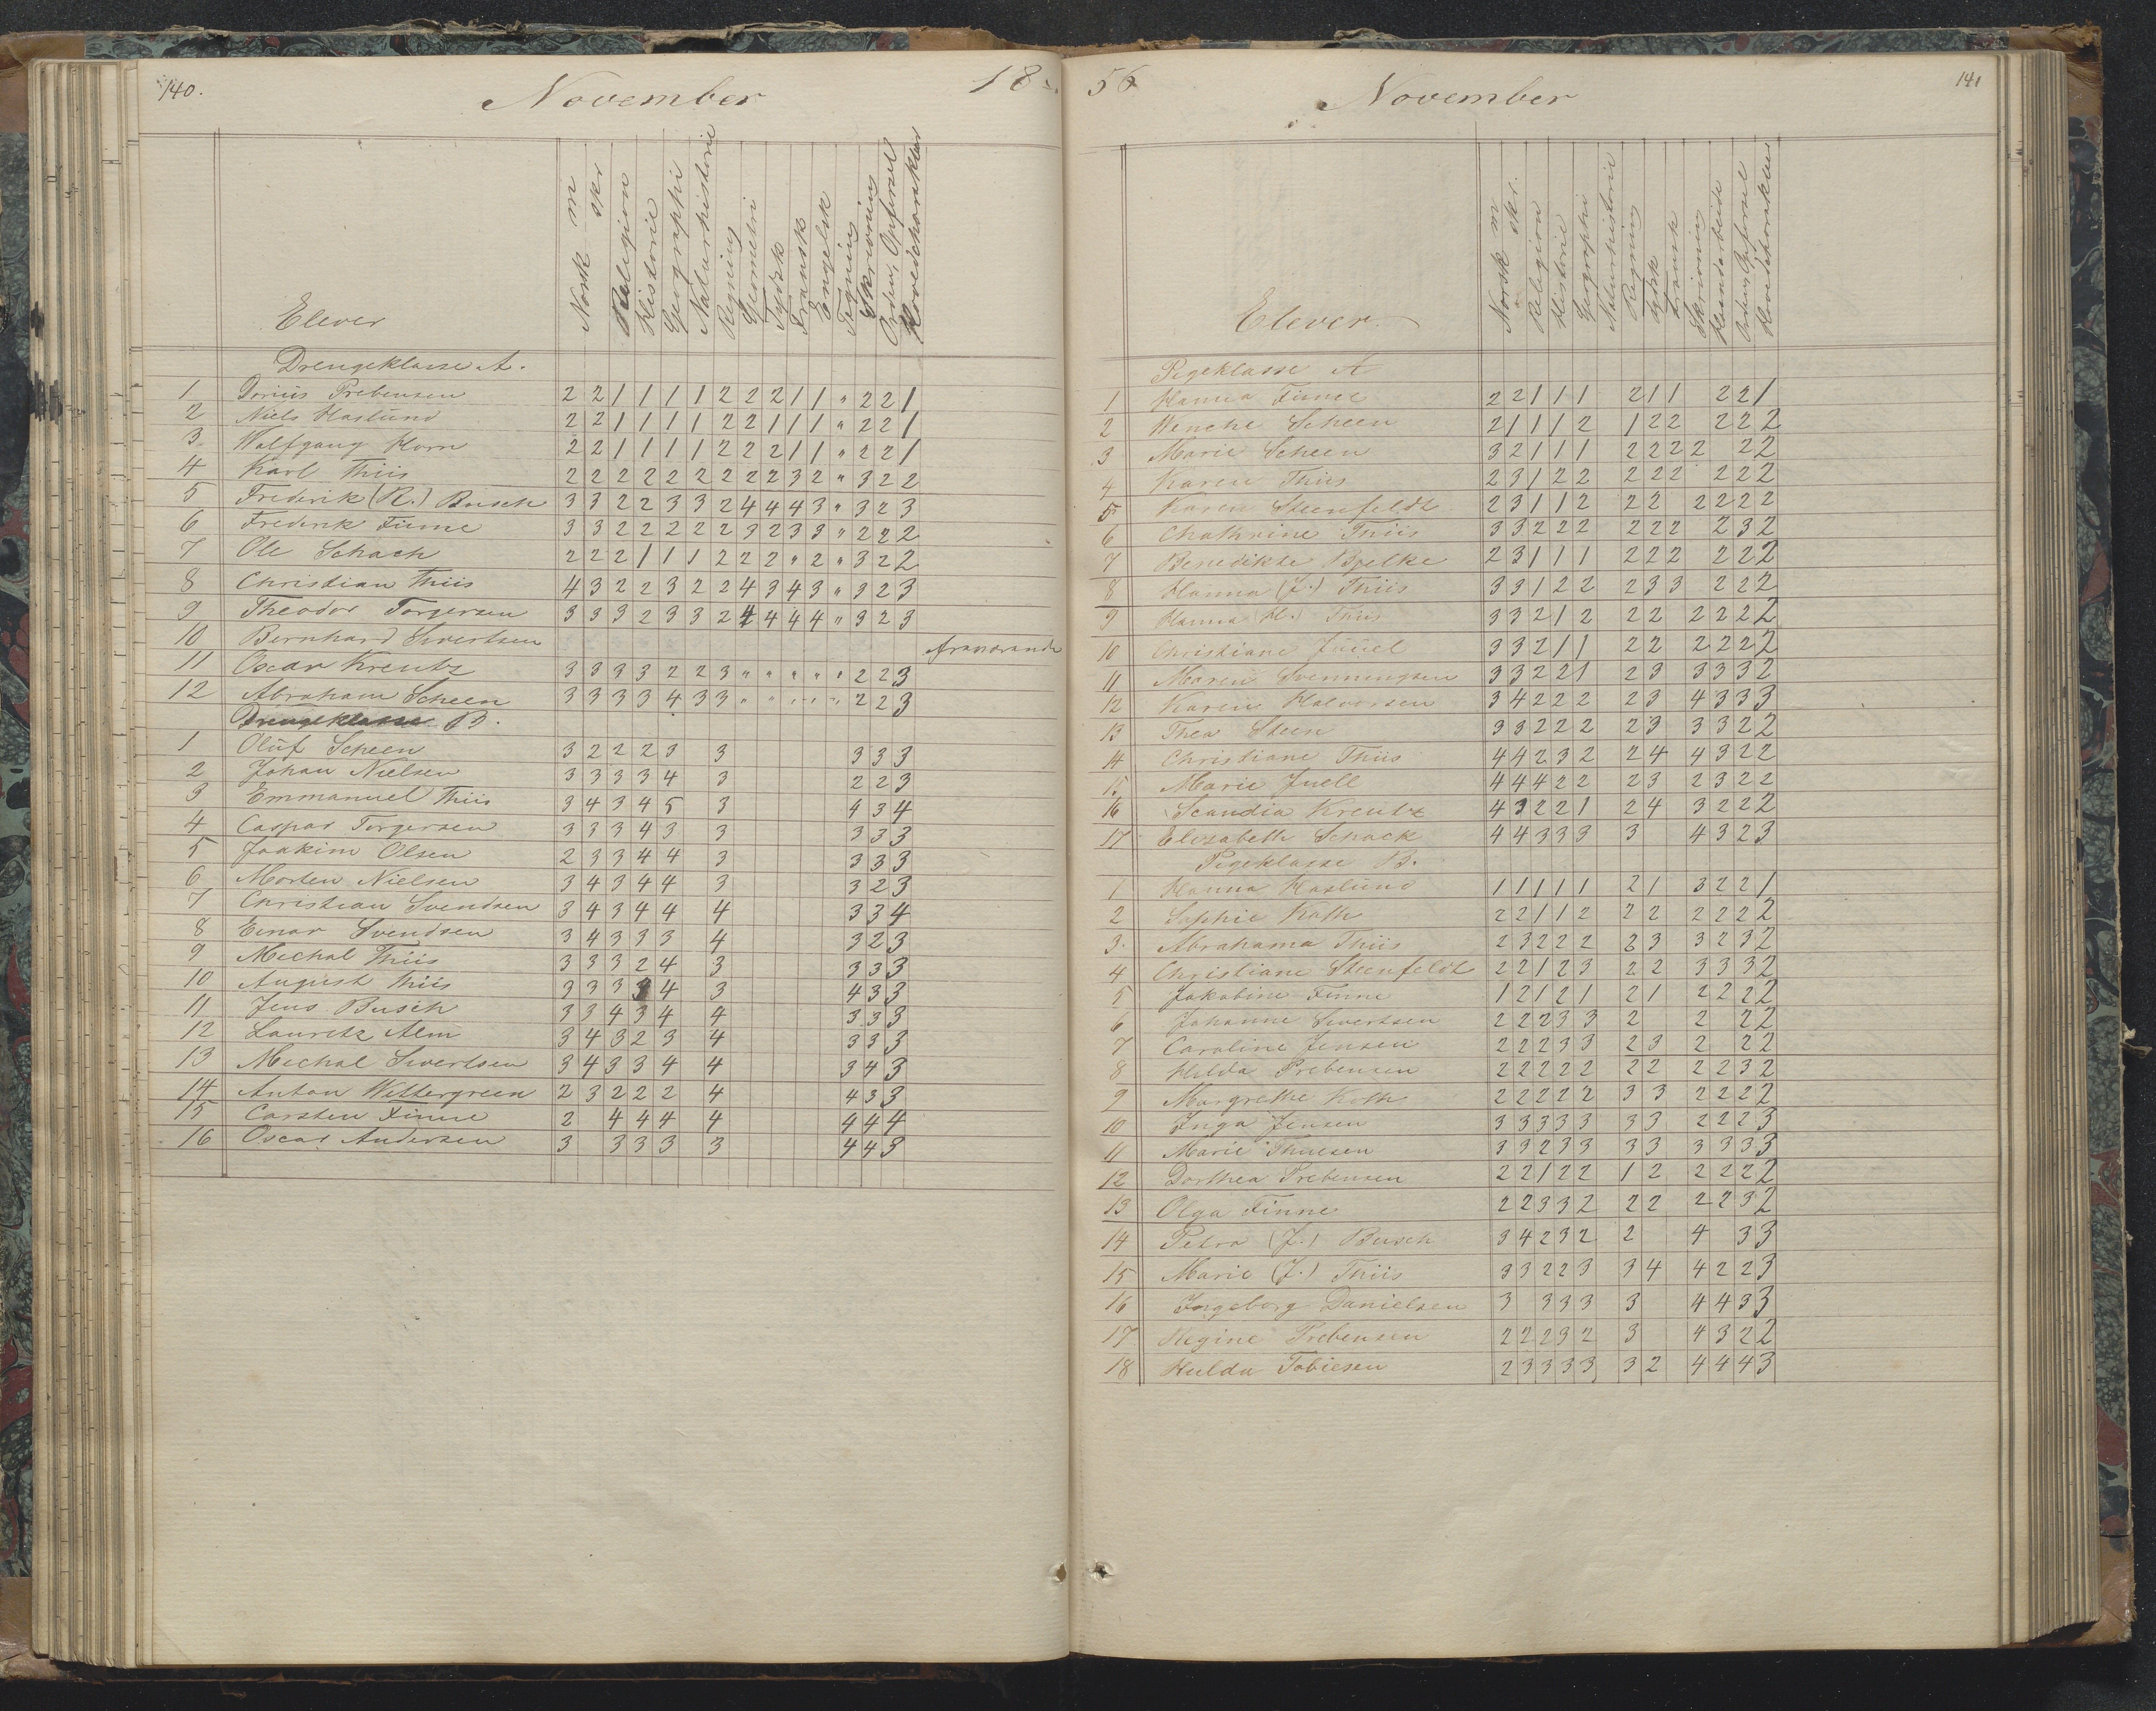 140.
November
18
Elever
Norsk m
skr
Religion
Historie
Geographi
Naturhistorie
Regning
Geometri
Tydsk
Fransk
Engelsk
Tegning
Skrivning
Orden, Opførsel
Hovedcharakter
Drengeklasse A.
1 Dorius Prebensen 2 2 1 1 1 1 2 2 2 1 1 " 2 2 1
2 Niels Haslund 2 2 1 1 1 1 2 2 1 1 1 " 2 2 1
3 Wolfgang Horn 2 2 1 1 1 1 2 2 2 1 1 " 2 2 1
4 Karl Thiis 2 2 2 2 2 2 2 2 2 3 2 " 3 2 2
5 Frederik (R.) Busch 3 3 2 2 3 3 2 4 4 4 3 " 3 2 3
6 Frederik Finne 3 3 2 2 2 2 2 3 2 3 3 " 2 2 2
7 Ole Schack 2 2 2 1 1 1 2 2 2 " 2 " 3 2 2
8 Christian Thiis 4 3 2 2 3 2 2 4 3 4 3 " 3 2 3
9 Theodor Torgersen 3 3 3 2 3 3 2 4 4 4 4 " 3 2 3
10 Bernhard Sivertsen fraværande
11 Oscar Kreutz 3 3 3 3 2 2 3 " " " " " 2 2 3
12 Abraham Scheen 3 3 3 3 4 3 3 " " " " " 2 2 3
Drengeklasse B.
1 Oluf Scheen 3 2 2 2 3 3 3 3 3
2 Johan Nielsen 3 3 3 3 4 3 2 2 3
3 Emmanuel Thiis 3 4 3 4 5 3 4 3 4
4 Caspar Torgersen 3 3 3 4 3 3 3 3 3
5 Joakim Olsen 2 3 3 4 4 3 3 3 3
6 Morten Nielsen 3 4 3 4 4 3 3 2 3
7 Christian Svendsen 3 4 3 4 4 4 3 3 4
8 Einar Svendsen 3 4 3 3 3 4 3 2 3
9 Mechal Thiis 3 3 3 2 4 3 3 3 3
10 August Thiis 3 3 3 3 4 3 4 3 3
11 Jens Busch 3 3 4 3 4 4 3 3 3
12 Lauretz Alm 3 4 3 2 3 4 3 3 3
13 Mechal Sivertsen 3 4 3 3 4 4 3 4 3
14 Anton Wettergreen 2 3 2 2 2 4 4 3 3
15 Carsten Finne 2 4 4 4 4 4 4 4
16 Oscar Andersen 3 3 3 3 3 4 4 3
56
November
141
Elever.
Norsk m
skr.
Religion
Historie
Geographi
Naturhistorie
Regning
Tydsk
Fransk
Skrivning
Haandarbeide
Orden, Opførsel
Hovedcharakter
Pigeklasse A
1 Hanna Finne 2 2 1 1 1 2 1 1 2 2 1
2 Wenche Scheen 2 1 1 1 2 1 2 2 2 2 2
3 Marie Scheen 3 2 1 1 1 2 2 2 2 2 2
4 Karen Thiis 2 3 1 2 2 2 2 2 2 2 2
5 Karen Steenfeldt 2 3 1 1 2 2 2 2 2 2 2
6 Chathrine Thiis 3 3 2 2 2 2 2 2 2 3 2
7 Benedikte Bjelke 2 3 1 1 1 2 2 2 2 2 2
8 Hanna (J.) Thiis 3 3 1 2 2 2 3 3 2 2 2
9 Hanna (H.) Thiis 3 3 2 1 2 2 2 2 2 2 2
10 Christiane Juuel 3 3 2 1 1 2 2 2 2 2 2
11 Maren Svenningsen 3 3 2 2 1 2 3 3 3 3 2
12 Karen Halvorsen 3 4 2 2 2 2 3 4 3 3 3
13 Thea Steen 3 3 2 2 2 2 3 3 3 2 2
14 Christiane Thiis 4 4 2 3 2 2 4 4 3 2 2
15 Marie Juell 4 4 4 2 2 2 3 2 3 2 2
16 Scandia Kreutz 4 3 2 2 1 2 4 3 2 2 2
17 Elisabeth Schack 4 4 3 3 3 3 4 3 2 3
Pigeklasse B.
1 Hanna Haslund 1 1 1 1 1 2 1 3 2 2 1
2 Sophie Koth 2 2 1 1 2 2 2 2 2 2 2
3. Abrahama Thiis 2 3 2 2 2 2 3 3 2 3 2
4 Christiane Steenfeldt 2 2 1 2 3 2 2 3 3 3 2
5 Jakobine Finne 1 2 1 2 1 2 1 2 2 2 2
6 Johanne Sivertsen 2 2 2 3 3 2 2 2 2
7 Caroline Jensen 2 2 2 3 3 2 3 2 2 2
8 Hilda Prebensen 2 2 2 2 2 2 2 2 2 3 2
9 Margrethe Koth 2 2 2 2 2 3 3 2 2 2 2
10 Inga Jensen 3 3 3 3 3 3 3 2 2 2 3
11 Marie Thuesen 3 3 2 3 3 3 3 3 3 3 3
12 Dorthea Prebensen 2 2 1 2 2 1 2 2 2 2 2
13 Olga Finne 2 2 3 3 2 2 2 2 2 3 2
14 Petra (J.) Busch 3 4 2 3 2 2 4 3 3
15 Marie (J.) Thiis 3 3 2 2 3 3 4 4 2 2 3
16 Ingeborg Danielsen 3 3 3 3 3 4 4 3 3
17 Regine Prebensen 2 2 2 3 2 3 4 3 2 2
18 Hulda Tobiesen 2 3 3 3 3 3 2 4 4 4 3